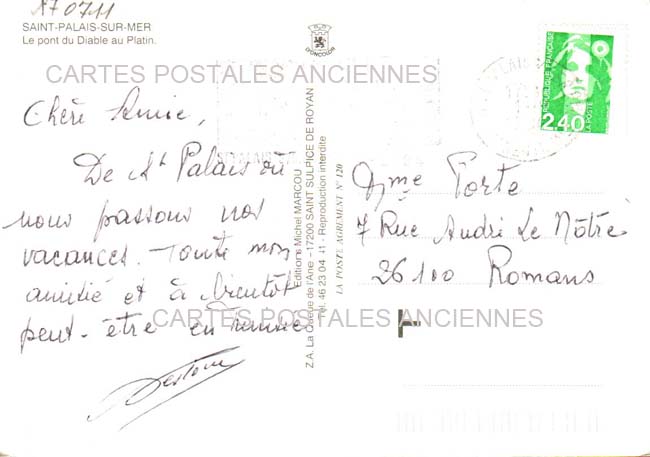 A7 0711
SAINT-PALAIS-SUR-MER
Le pont du Diable au Platin.
D'ONCOLOR
CARTES POSTALES ANCIENNES
Chère Amie,
De St Palais où
nous passons nos
vacances. Toute mon
amitié et à bientôt
peut-être en
CARTES POSTALES ANCIENNES
Editions Michel MARCOU
Z.A. La Queue de l'Ane - 17200 SAINT SULPICE DE ROYAN
Tél. 46 23 04 41 - Reproduction interdite
LA POSTE AGREMENT N° 120
REPUBLIQUE FRANÇAISE
2,40
LA POSTE
Mme Forte
7 Rue André Le Nôtre
26100 Romans